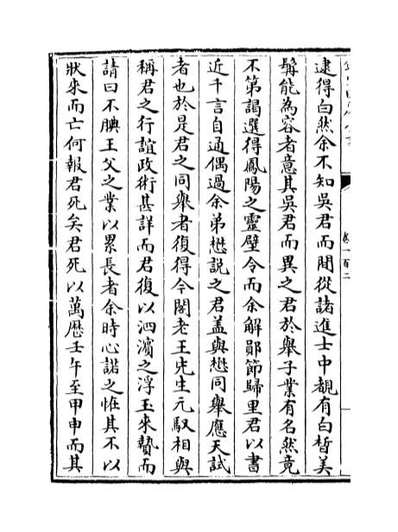 逮得白然余不知吳君而間從諸進士中覩有白皙美
鬅能為容者意其吳君而異之君於舉子業有名然竟
不第謁選得鳳陽之靈壁令而余解鄖節歸里君以書
近千言自通偶過余弟懋說之君蓋與懋同舉應天試
者也於是君之同舉者復得今閣老王先生元馭相與
稱君之行誼政術甚詳而君復以泗濱之浮玉來贄而
請曰不腆王父之業以累長者余時心諾之恠其不以
狀來而亡何報君死矣君死以萬歷壬午至甲申而其
卷一百二